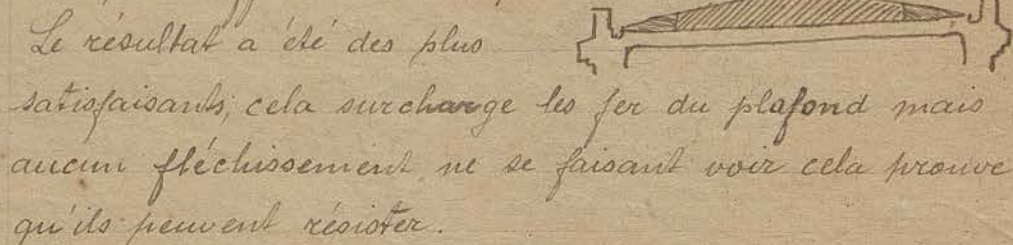 Le résultat a été des plus
satisfaisants; cela surcharge les fer du plafond mais
aucun fléchissement ne se faisant voir cela prouve
qu'ils peuvent résister.